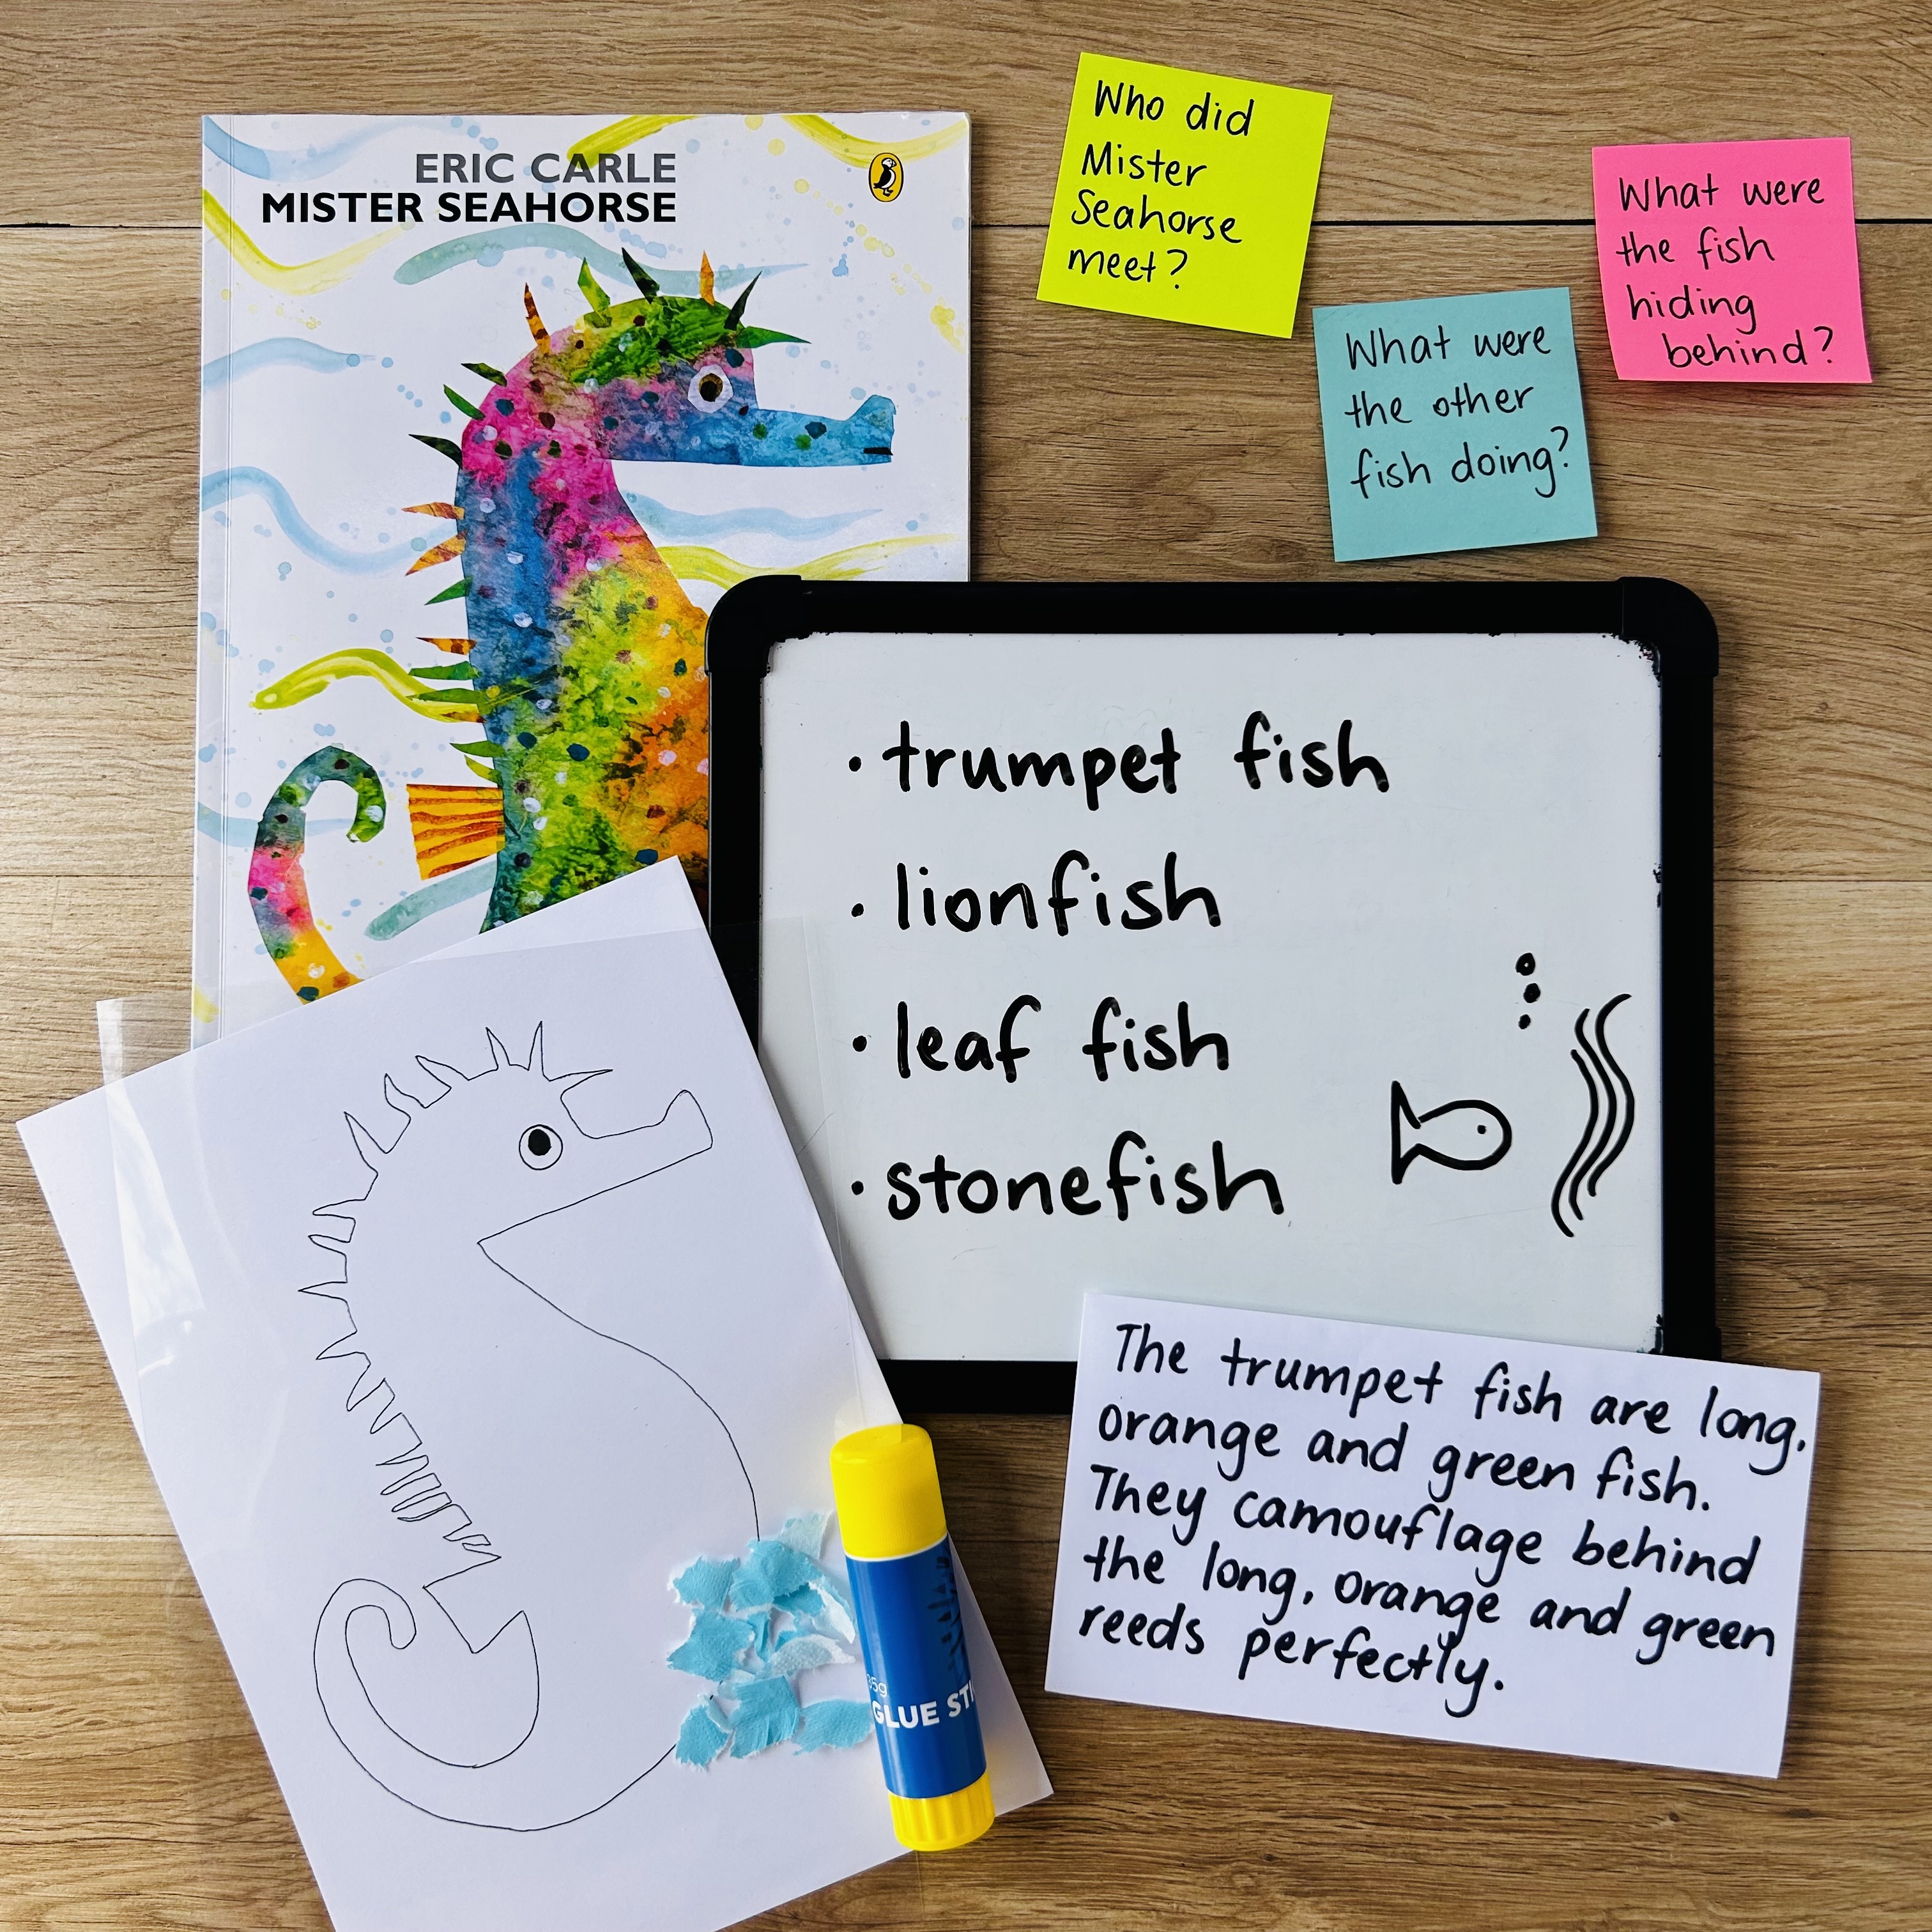 ERIC CARLE
MISTER SEAHORSE
Who did
Mister
Seahorse
meet?
What were
the other
fish doing?
What were
the fish
hiding
behind?
• trumpet fish
• lionfish
• leaf fish
• stonefish
The trumpet fish are long,
orange and green fish.
They camouflage behind
the long, orange and green
reeds perfectly.
35g
GLUE STI